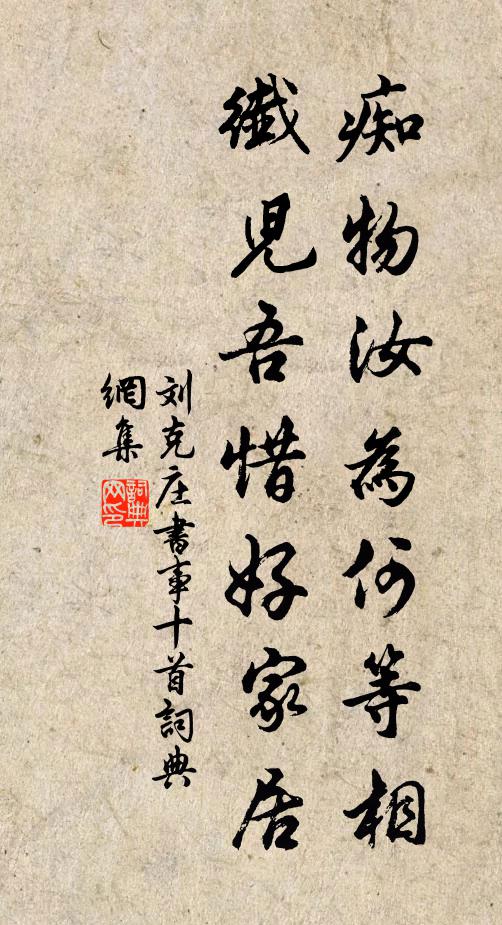 痴物汝為何等相
纎児吾惜好家居
刘克庄書事十首詞典
網集
詞典
网印